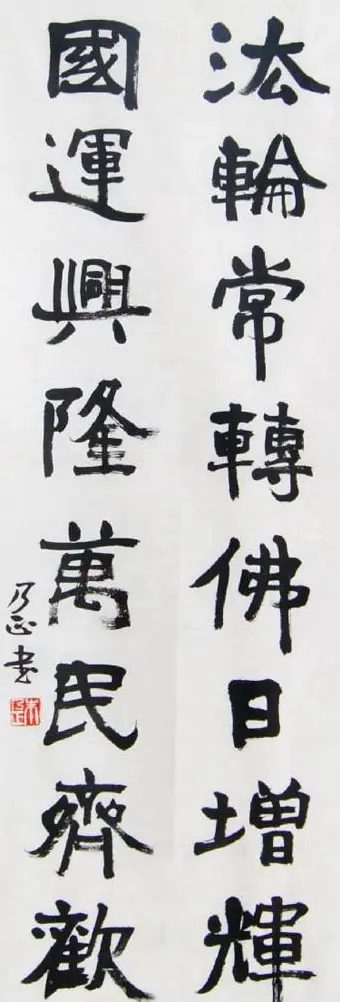 法輪常轉佛日增輝
國運興隆萬民齊歡
乃正书